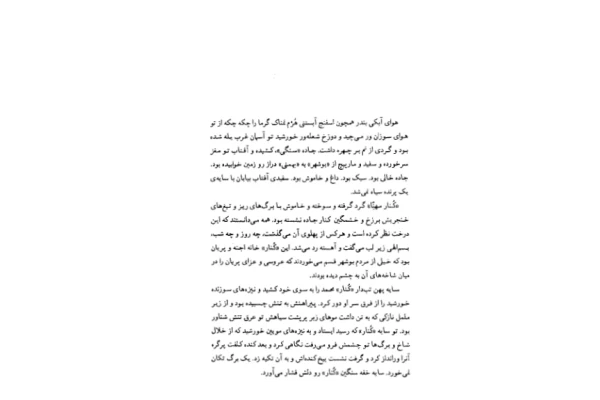 هوای آبکی بندر همچون اسفنج آبستنی هُرْم نمناک گرما را چکه چکه از تو
هوای سوزان ور می‌چید و دوزخ شعله‌ور خورشید تو آسمان غرب یله شده
بود و گردی از نم بر چهره داشت. جاده «سنگی»، کشیده و آفتاب تو مغز
سرخورده و سفید و مارپیچ از «بوشهر» به «بهمنی» دراز رو زمین خوابیده بود.
جاده خالی بود. سبک بود. داغ و خاموش بود. سفیدی آفتاب بیابان با سایه‌ی
یک پرنده سیاه نمی‌شد.
«کُنار مهنّا» گرد گرفته و سوخته و خاموش با برگ‌های ریز و تیغ‌های
خنجریش برزخ و خشمگین کنار جاده نشسته بود. همه می‌دانستند که این
درخت نظر کرده است و هرکس از پهلوی آن می‌گذشت، چه روز و چه شب،
بسم‌اللهی زیر لب می‌گفت و آهسته رد می‌شد. این «کُنار» خانه اجنه و پریان
بود که خیلی از مردم بوشهر قسم می‌خوردند که عروسی و عزای پریان را در
میان شاخه‌های آن به چشم دیده بودند.
سایه پهن تب‌دار «کُنار» محمد را به سوی خود کشید و نیزه‌های سوزنده
خورشید را از فرق سر او دور کرد. پیراهنش به تنش چسبیده بود و از زیر
ململ نازکی که به تن داشت موهای زبر پرپشت سیاهش تو عرق تنش شناور
بود. تو سایه «کُنار» که رسید ایستاد و به نیزه‌های مویین خورشید که از خلال
شاخ و برگ‌ها تو چشمش فرو می‌رفت نگاهی کرد و بعد کنده کلفت پرگره
آنرا ورانداز کرد و گرفت نشست بیخ کنده‌اش و به آن تکیه زد. یک برگ تکان
نمی‌خورد. سایه خفه سنگین «کُنار» رو دلش فشار می‌آورد.